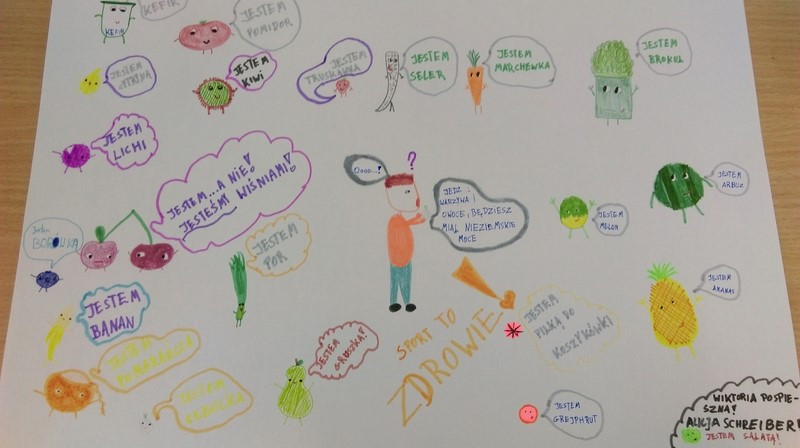 KEFIR
KEFIR
JESTEM
POMIDOR
JESTEM
CYTRYNA
JESTEM
KIWI
JESTEM
TRUSKAWKA
JESTEM
SELER
JESTEM
MARCHEWKA
JESTEM
BROKUŁ
JESTEM
LICHI
JESTEM...A NIE!
JESTEŚMY WIŚNIAMI!
Jestem
BORÓWKA
JESTEM
POR
Oooo...!
?
JEDZ...
WARZYWA I
OWOCE, BĘDZIESZ
MIAŁ NIEZIEMSKIE
MOCE
JESTEM
MELON
JESTEM
ARBUZ
JESTEM
ANANAS
JESTEM
BANAN
JESTEM
POMARAŃCZĄ
JESTEM
JESTEM
GRUSZKA!
SPORT TO
ZDROWIE
JESTEM
PIŁKĄ DO
KOSZYKÓWKI
JESTEM
GREJPFRUT
WIKTORIA POSPIE-
SZNA!
ALICJA SCHREIBER!
JESTEM SAŁATĄ!